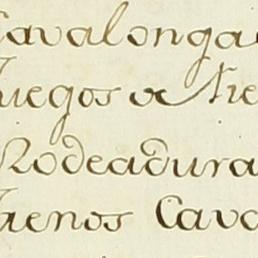 Cavalonga
Juegos de Nie
Rodeadura
Jaenos Cava